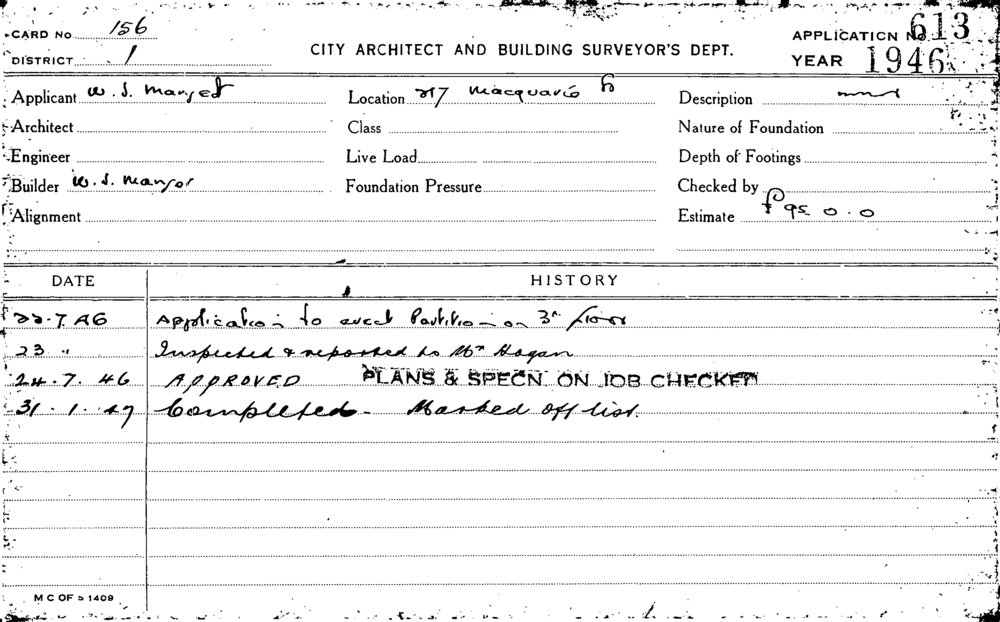 CARD No. 156
DISTRICT 1
CITY ARCHITECT AND BUILDING SURVEYOR'S DEPT.
APPLICATION No. 613
YEAR 1946
Applicant W. S.
Location 217 Macquarie St
Description
Architect
Class
Nature of Foundation
Engineer
Live Load
Depth of Footings
Builder W. S.
Foundation Pressure
Checked by
Alignment
Estimate £95.0.0
DATE HISTORY
22.7.46 Application to erect Partition on 3rd floor
23 " Inspected & reported to Mr Hogan
24.7.46 APPROVED PLANS & SPECN. ON JOB CHECKED
31.1.47 Completed - Marked off list.
M C OF S 1409